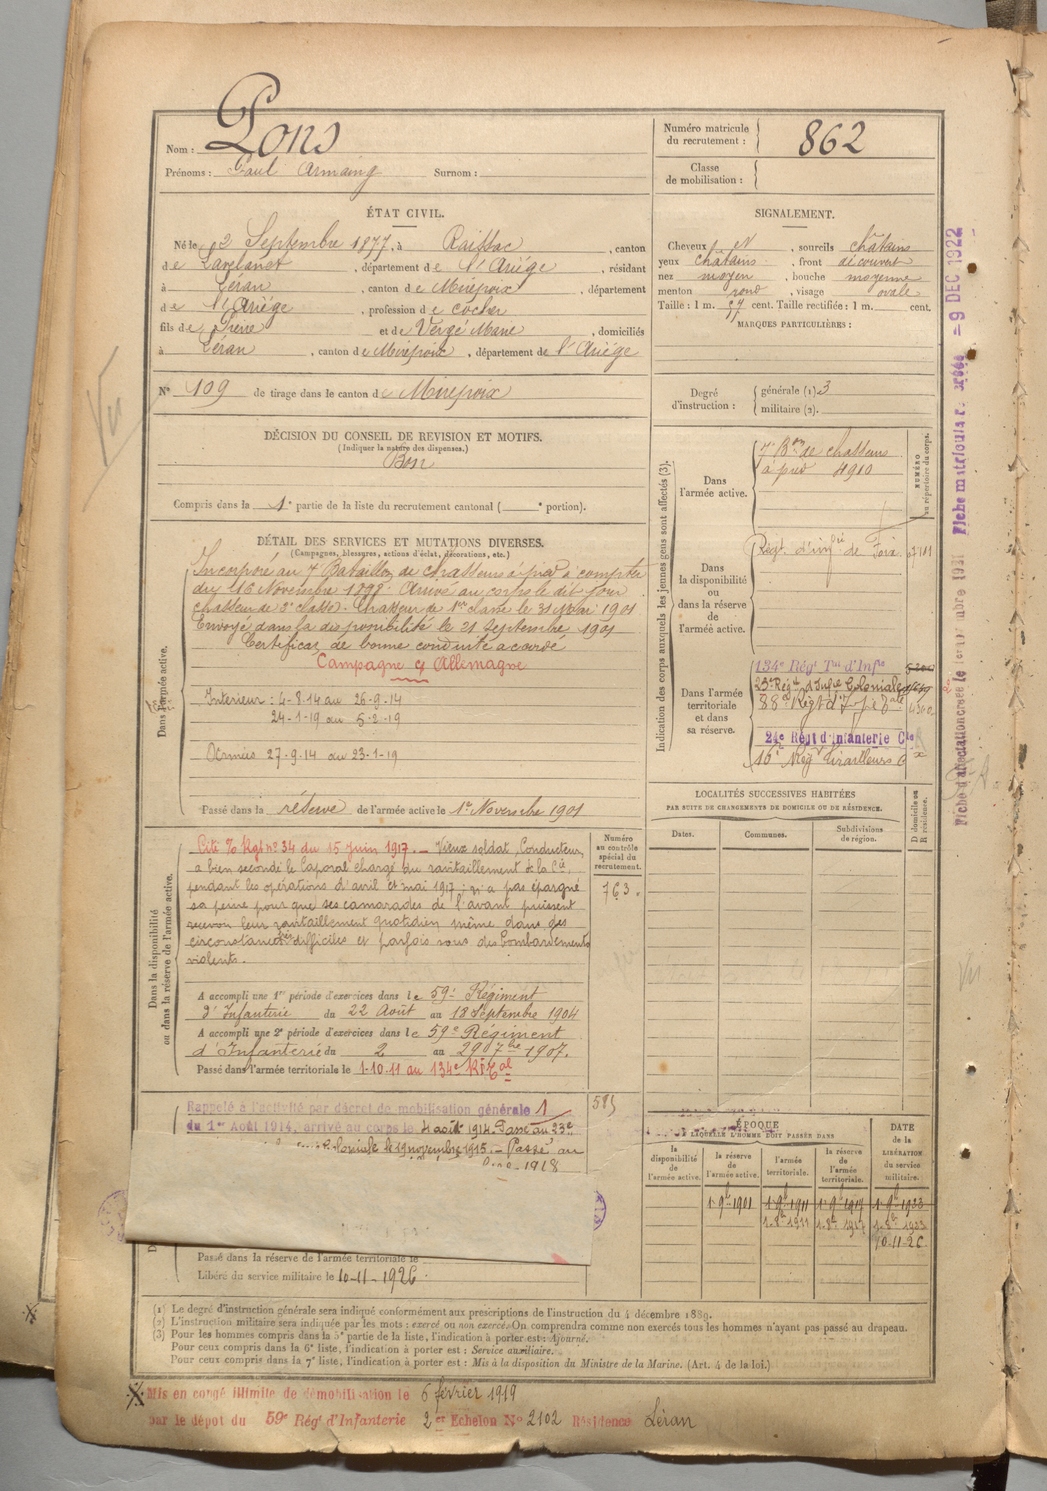 Nom : Pons
Prénoms : Paul Armaing Surnom :
Numéro matricule du recrutement : 862
Classe de mobilisation :
ÉTAT CIVIL.
Né le 2 Septembre 1877, à Raissac, canton
de Lavelanet, département de l'Ariège, résidant
à Léran, canton de Mirepoix, département
de l'Ariège, profession de cocher
fils de Pierre et de Vergé Marie, domiciliés
à Léran, canton de Mirepoix, département de l'Ariège
N° 109 de tirage dans le canton de Mirepoix
SIGNALEMENT.
Cheveux N, sourcils châtains
yeux châtains, front découvert
nez moyen, bouche moyenne
menton rond, visage ovale
Taille : 1 m. cent. Taille rectifiée : 1 m. cent.
MARQUES PARTICULIÈRES :
Degré d'instruction : générale (1) 3
militaire (2).
DÉCISION DU CONSEIL DE REVISION ET MOTIFS.
(Indiquer la nature des dispenses.)
Bon
Compris dans la 1e partie de la liste du recrutement cantonal ( e portion).
DÉTAIL DES SERVICES ET MUTATIONS DIVERSES.
(Campagnes, blessures, actions d'éclat, décorations, etc.)
Dans l'armée active.
Incorporé au 7e Bataillon de chasseurs à pied à compter
du 16 Novembre 1898. Arrivé au corps le dit jour
chasseur de 2e classe. Chasseur de 1re classe le 31 Mai 1901
Envoyé dans la disponibilité le 21 Septembre 1901
Certificat de bonne conduite accordé
Campagne c/ Allemagne
Intérieur : 4-8-14 au 26-9-14
24-1-19 au 5-2-19
Armées 27-9-14 au 23-1-19
Passé dans la réserve de l'armée active le 1er Novembre 1901
Indication des corps auxquels les jeunes gens sont affectés (3).
NUMÉRO au répertoire du corps.
Dans l'armée active.
7e Bon de chasseurs
à pied 4910
Dans la disponibilité ou dans la réserve de l'armée active.
Régt. d'infie de Foix
Dans l'armée territoriale et dans sa réserve.
134e Régt Tal d'Infie
23e Régt d'Infie Coloniale
24e Régt d'Infanterie Cle
16e Régt Tirailleurs
LOCALITÉS SUCCESSIVES HABITÉES
PAR SUITE DE CHANGEMENTS DE DOMICILE OU DE RÉSIDENCE.
Dates. Communes. Subdivisions de région. D domicile ou R résidence.
Dans la disponibilité ou dans la réserve de l'armée active.
Numéro au contrôle spécial du recrutement.
763.
Cité % Rgt n° 34 du 15 juin 1917. — Vieux soldat, Conducteur,
a bien secondé le Caporal chargé du ravitaillement de la Cie,
pendant les opérations d'avril et mai 1917 ; n'a pas épargné
sa peine pour que ses camarades de l'avant puissent
recevoir leur ravitaillement quotidien même dans des
circonstances très difficiles et parfois sous des bombardements
violents.
A accompli une 1re période d'exercices dans le 59e Régiment
d'Infanterie du 22 Août au 18 Septembre 1904
A accompli une 2e période d'exercices dans le 59e Régiment
d'Infanterie du 2 au 29 07bre 1907.
Passé dans l'armée territoriale le 1-10-11 au 134e Rt Tal
Rappelé à l'activité par décret de mobilisation générale
du 1er Août 1914, arrivé au corps le 4 août 1914. Passé au 23e
le 19 novembre 1915. — Passé au
1918
Passé dans la réserve de l'armée territoriale le
Libéré du service militaire le 10-11-1926.
ÉPOQUE
À LAQUELLE L'HOMME DOIT PASSER DANS
la disponibilité de l'armée active.
la réserve de l'armée active.
l'armée territoriale.
la réserve de l'armée territoriale.
DATE de la LIBÉRATION du service militaire.
10-11-26
(1) Le degré d'instruction générale sera indiqué conformément aux prescriptions de l'instruction du 4 décembre 1889.
(2) L'instruction militaire sera indiquée par les mots : exercé ou non exercé. On comprendra comme non exercés tous les hommes n'ayant pas passé au drapeau.
(3) Pour les hommes compris dans la 5e partie de la liste, l'indication à porter est : Ajourné.
Pour ceux compris dans la 6e liste, l'indication à porter est : Service auxiliaire.
Pour ceux compris dans la 7e liste, l'indication à porter est : Mis à la disposition du Ministre de la Marine. (Art. 4 de la loi.)
Mis en congé illimité de démobilisation le 6 février 1919
par le dépôt du 59e Régt d'Infanterie 2e Echelon N° 2102 Résidence Léran
Vu
Fiche matricule
-9 DEC 1922
Fiche d'affectation créée le